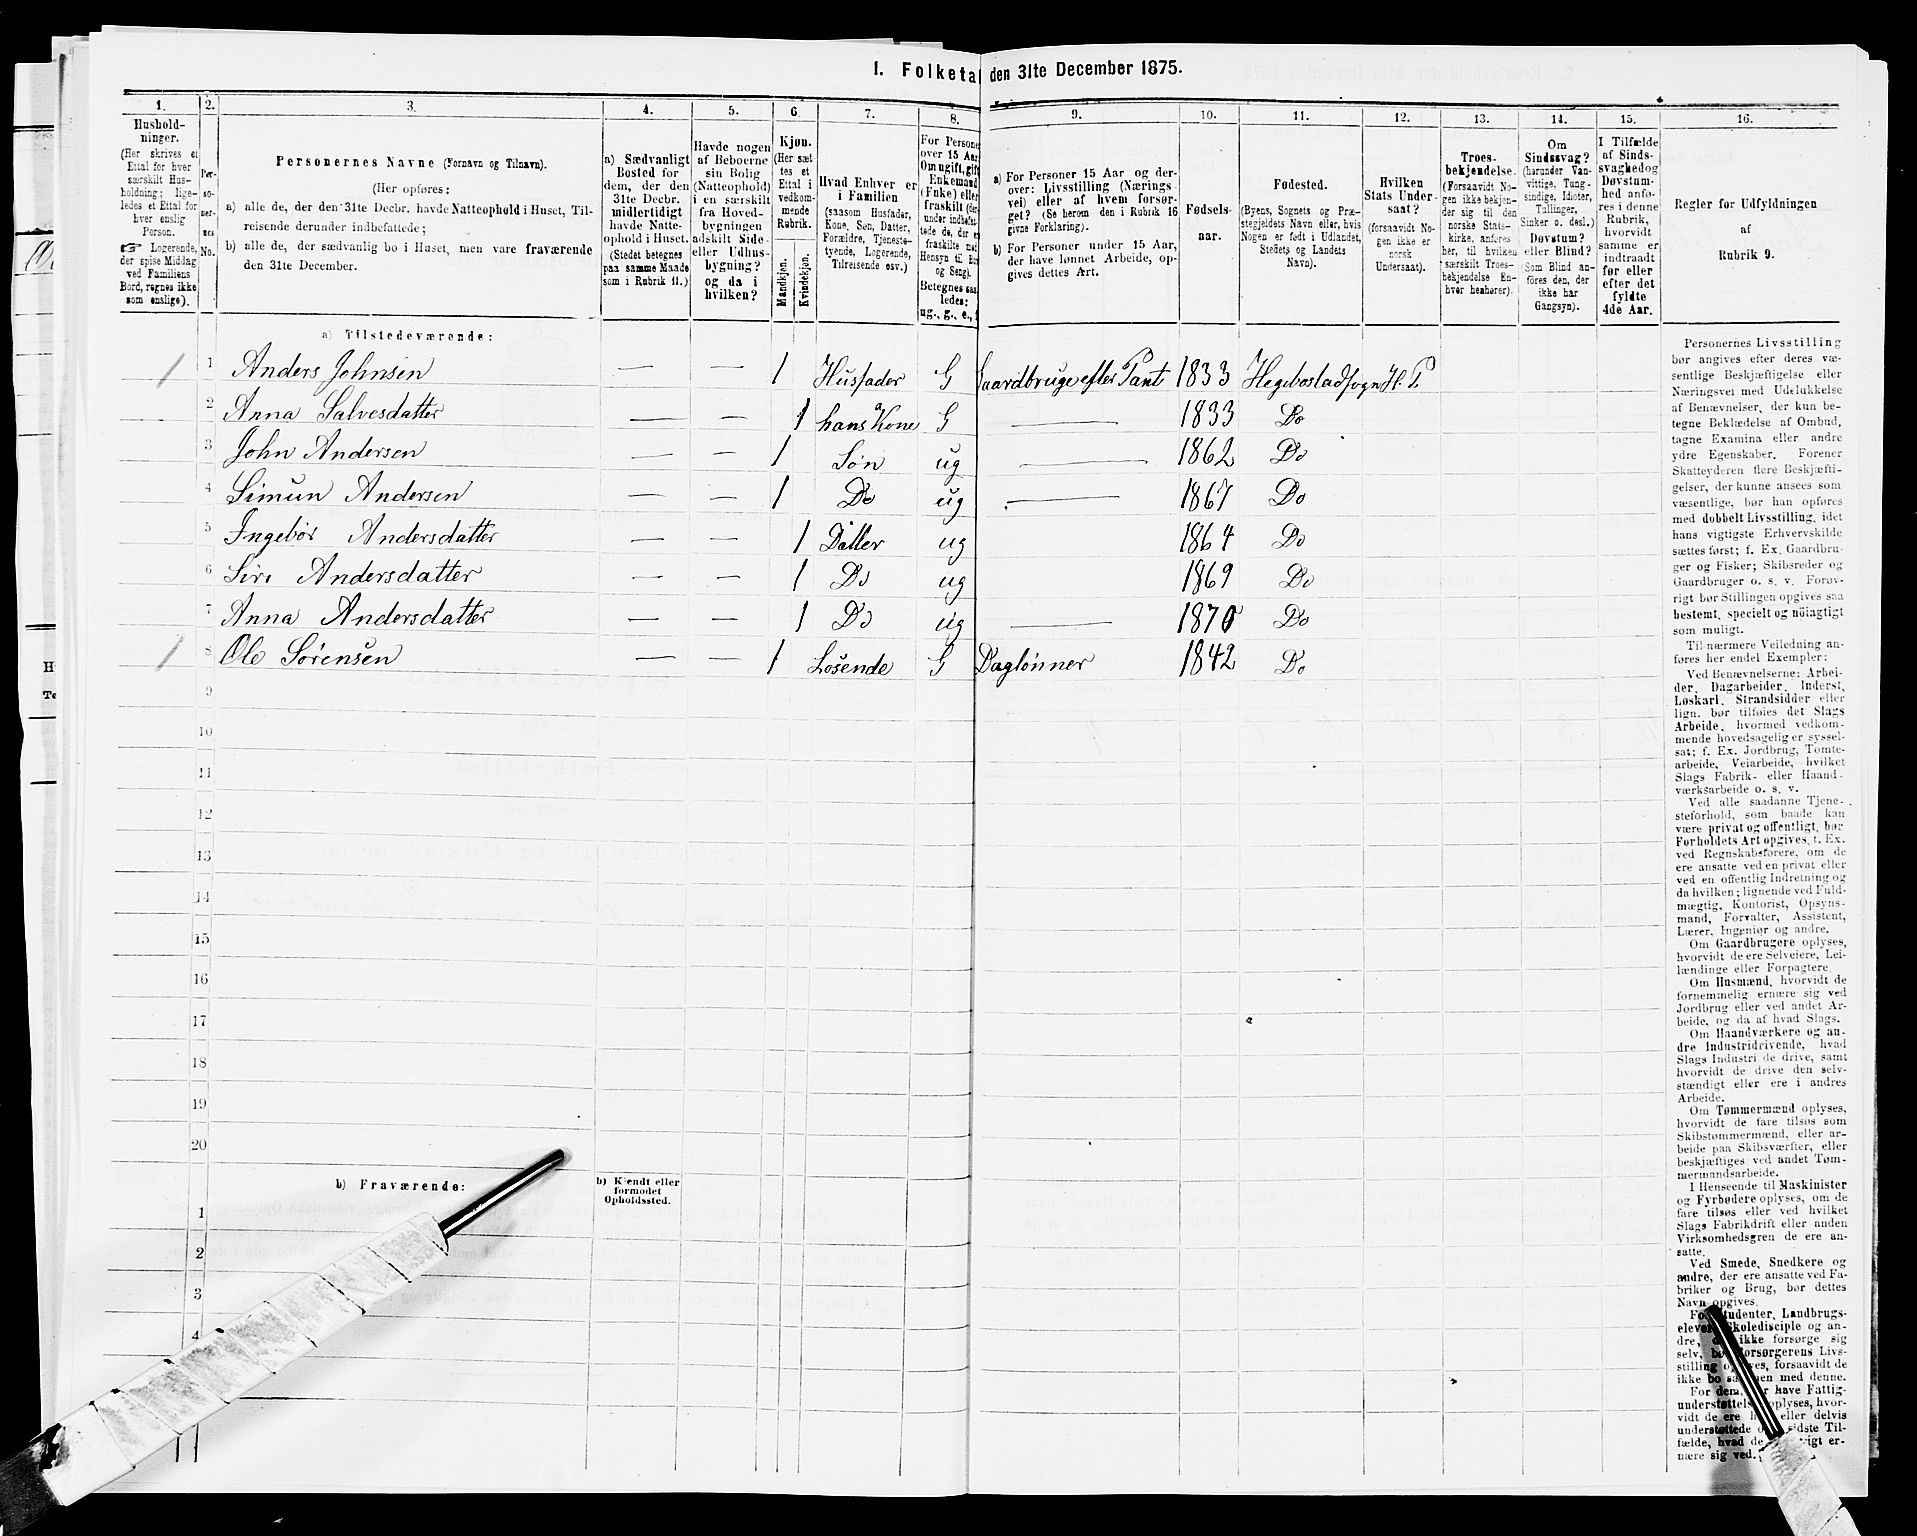 1. Folketa den 31te December 1875.
1. 2. 3. 4. 5. 6. 7. 8. 9. 10. 11. 12. 13. 14. 15. 16.
Hushold-
ninger.
(Her skrives et
Ettal for hver
særskilt Hus-
holdning; lige-
ledes et Ettal for
hver enslig
Person.
☞ Logerende,
der spise Middag
ved Familiens
Bord, regnes ikke
som enslige).
Per-
so-
ner-
nes
No.
Personernes Navne (Fornavn og Tilnavn).
(Her opføres:
a) alle de, der den 31te Decbr. havde Natteophold i Huset, Til-
reisende derunder indbefattede;
b) alle de, der sædvanlig bo i Huset, men vare fraværende
den 31te December.
a) Sædvanligt
Bosted for
dem, der den
31te Decbr.
midlertidigt
havde Natte-
ophold i Huset.
(Stedet betegnes
paa samme Maade
som i Rubrik 11.)
Havde nogen
af Beboerne
sin Bolig
(Natteophold)
i en særskilt
fra Hoved-
bygningen
adskilt Side-
eller Udhus-
bygning?
og da i
hvilken?
Kjøn.
(Her sæt-
tes et
Ettal i
vedkom-
mende
Rubrik.
Mandkjøn.
Kvindekjøn.
Hvad Enhver er
i Familien
(saasom Husfader,
Kone, Søn, Datter,
Forældre, Tjeneste-
tyende, Logerende,
Tilreisende osv.)
For Persone
over 15 Aar
Om ugift, gift
Enkemand
(Enke) eller
fraskilt (der-
under indbefat-
tede de, der er
fraskilte med
Hensyn til Bo
og Seng).
Betegnes saa-
ledes:
ug., g., e.,
a) For Personer 15 Aar og der-
over: Livsstilling (Nærings
vei) eller af hvem forsør-
get? (Se herom den i Rubrik 16
givne Forklaring).
b) For Personer under 15 Aar,
der have lønnet Arbeide, op-
gives dettes Art.
Fødsels-
aar.
Fødested.
(Byens, Sognets og Præ-
stegjeldets Navn eller, hvis
Nogen er født i Udlandet,
Stedets og Landets
Navn).
Hvilken
Stats Under-
saat?
(forsaavidt No-
gen ikke er
norsk
Undersaat).
Troes-
bekjendelse.
(Forsaavidt No-
gen ikke bekjen-
der sig til den
norske Stats-
kirke, anføres
her, til hvilken
særskilt Troes-
bekjendelse En-
hver henhører).
Om
Sindssvag?
(herunder Van-
vittige, Tung-
sindige, Idioter,
Tullinger,
Sinker o. desl.)
Døvstum?
eller Blind?
(Som Blind an-
føres den, der
ikke har
Gangsyn).
I Tilfælde
af Sinds-
svaghed og
Døvstum-
hed anfø-
res i denne
Rubrik,
hvorvidt
samme er
indtraadt
før eller
efter det
fyldte
4de Aar.
Regler for Udfyldningen
af
Rubrik 9.
a) Tilstedeværende:
1 1 Anders Johnsen — — 1 Husfader G Gaardbruge efter Pant 1833 Hegebostad sogn H. P.
2 Anna Salvesdatter — — 1 hans Kone G — 1833 Do
3 John Andersen — — 1 Søn ug — 1862 Do
4 Simun Andersen — — 1 Do ug — 1867 Do
5 Ingebor Andersdatter — — 1 Datter ug 1864 Do
6 Siri Andersdatter — — 1 Do ug 1869 Do
7 Anna Andersdatter — — 1 Do ug — 1870 Do
1 8 Ole Sørensen — — 1 Losende G Daglønner 1842 Do
9
10
11
12
13
14
15
16
17
18
19
20
b) Fraværende:
b) Kjendt eller
formodet
Opholdssted.
1
2
3
4
Personernes Livsstilling
bør angives efter deres væ-
sentlige Beskjæftigelse eller
Næringsvei med Udelukkelse
af Benævnelser, der kun be-
tegne Beklædelse af Ombud,
tagne Examina eller andre
ydre Egenskaber. Forener
Skatteyderen flere Beskjæfti-
gelser, der kunne ansees som
væsentlige, bør han opføres
med dobbelt Livsstilling, idet
hans vigtigste Erhvervskilde
sættes først; f. Ex. Gaardbru-
ger og Fisker; Skibsreder og
Gaardbruger o. s. v. Forøv-
rigt bør Stillingen opgives saa
bestemt, specielt og nöiagtigt
som muligt.
Til nærmere Veiledning an-
føres her endel Exempler:
Ved Benævnelserne: Arbei-
der, Dagarbeider, Inderst,
Løskarl, Strandsidder eller
lign. bør tilføies det Slags
Arbeide, hvormed vedkom-
mende hovedsagelig er syssel-
sat; f. Ex. Jordbrug, Tomte-
arbeide, Veiarbeide, hvilket
Slags Fabrik- eller Haand-
værksarbeide o. s. v.
Ved alle saadanne Tjene-
steforhold, som baade kan
være privat og offentligt, bør
Forholdets Art opgives, f. Ex.
ved Regnskabsførere, om de
ere ansatte ved en privat eller
ved en offentlig Indretning og
da hvilken; lignende ved Fuld-
mægtig, Kontorist, Opsyns-
mand, Forvalter, Assistent,
Lærer, Ingeniør og andre.
Om Gaardbrugere oplyses,
hvorvidt de ere Selveiere, Lei-
lændinge eller Forpagtere.
Om Husmænd, hvorvidt de
fornemmelig ernære sig ved
Jordbrug eller ved andet Ar-
beide, og da af hvad Slags.
Om Haandværkere og an-
dre Industridrivende, hvad
Slags Industri de drive, samt
hvorvidt de drive den selv-
stændigt eller ere i andres
Arbeide.
Om Tømmermænd oplyses,
hvorvidt de fare tilsøs som
Skibstømmermænd, eller ar-
beide paa Skibsværfter, eller
beskjæftiges ved andet Tøm-
mermandsarbeide.
I Henseende til Maskinister
og Fyrbødere oplyses, om de
fare tilsøs eller ved hvilket
Slags Fabrikdrift eller anden
Virksomhedsgren de ere an-
satte.
Ved Smede, Snedkere og
andre, der ere ansatte ved Fa-
briker og Brug, bør dettes
Navn opgives.
Studenter, Landbrugs-
Skoledisciple og an-
dre, ikke forsørge sig
selv, Forsørgerens Livs-
stilling forsaavidt de
ikke bo med denne.
For dem, have Fattig-
understøttelse oplyses, hvor-
vidt de ere eller delvis
understøttede sidste Til-
fælde, hvad de er-
nære sig ved.